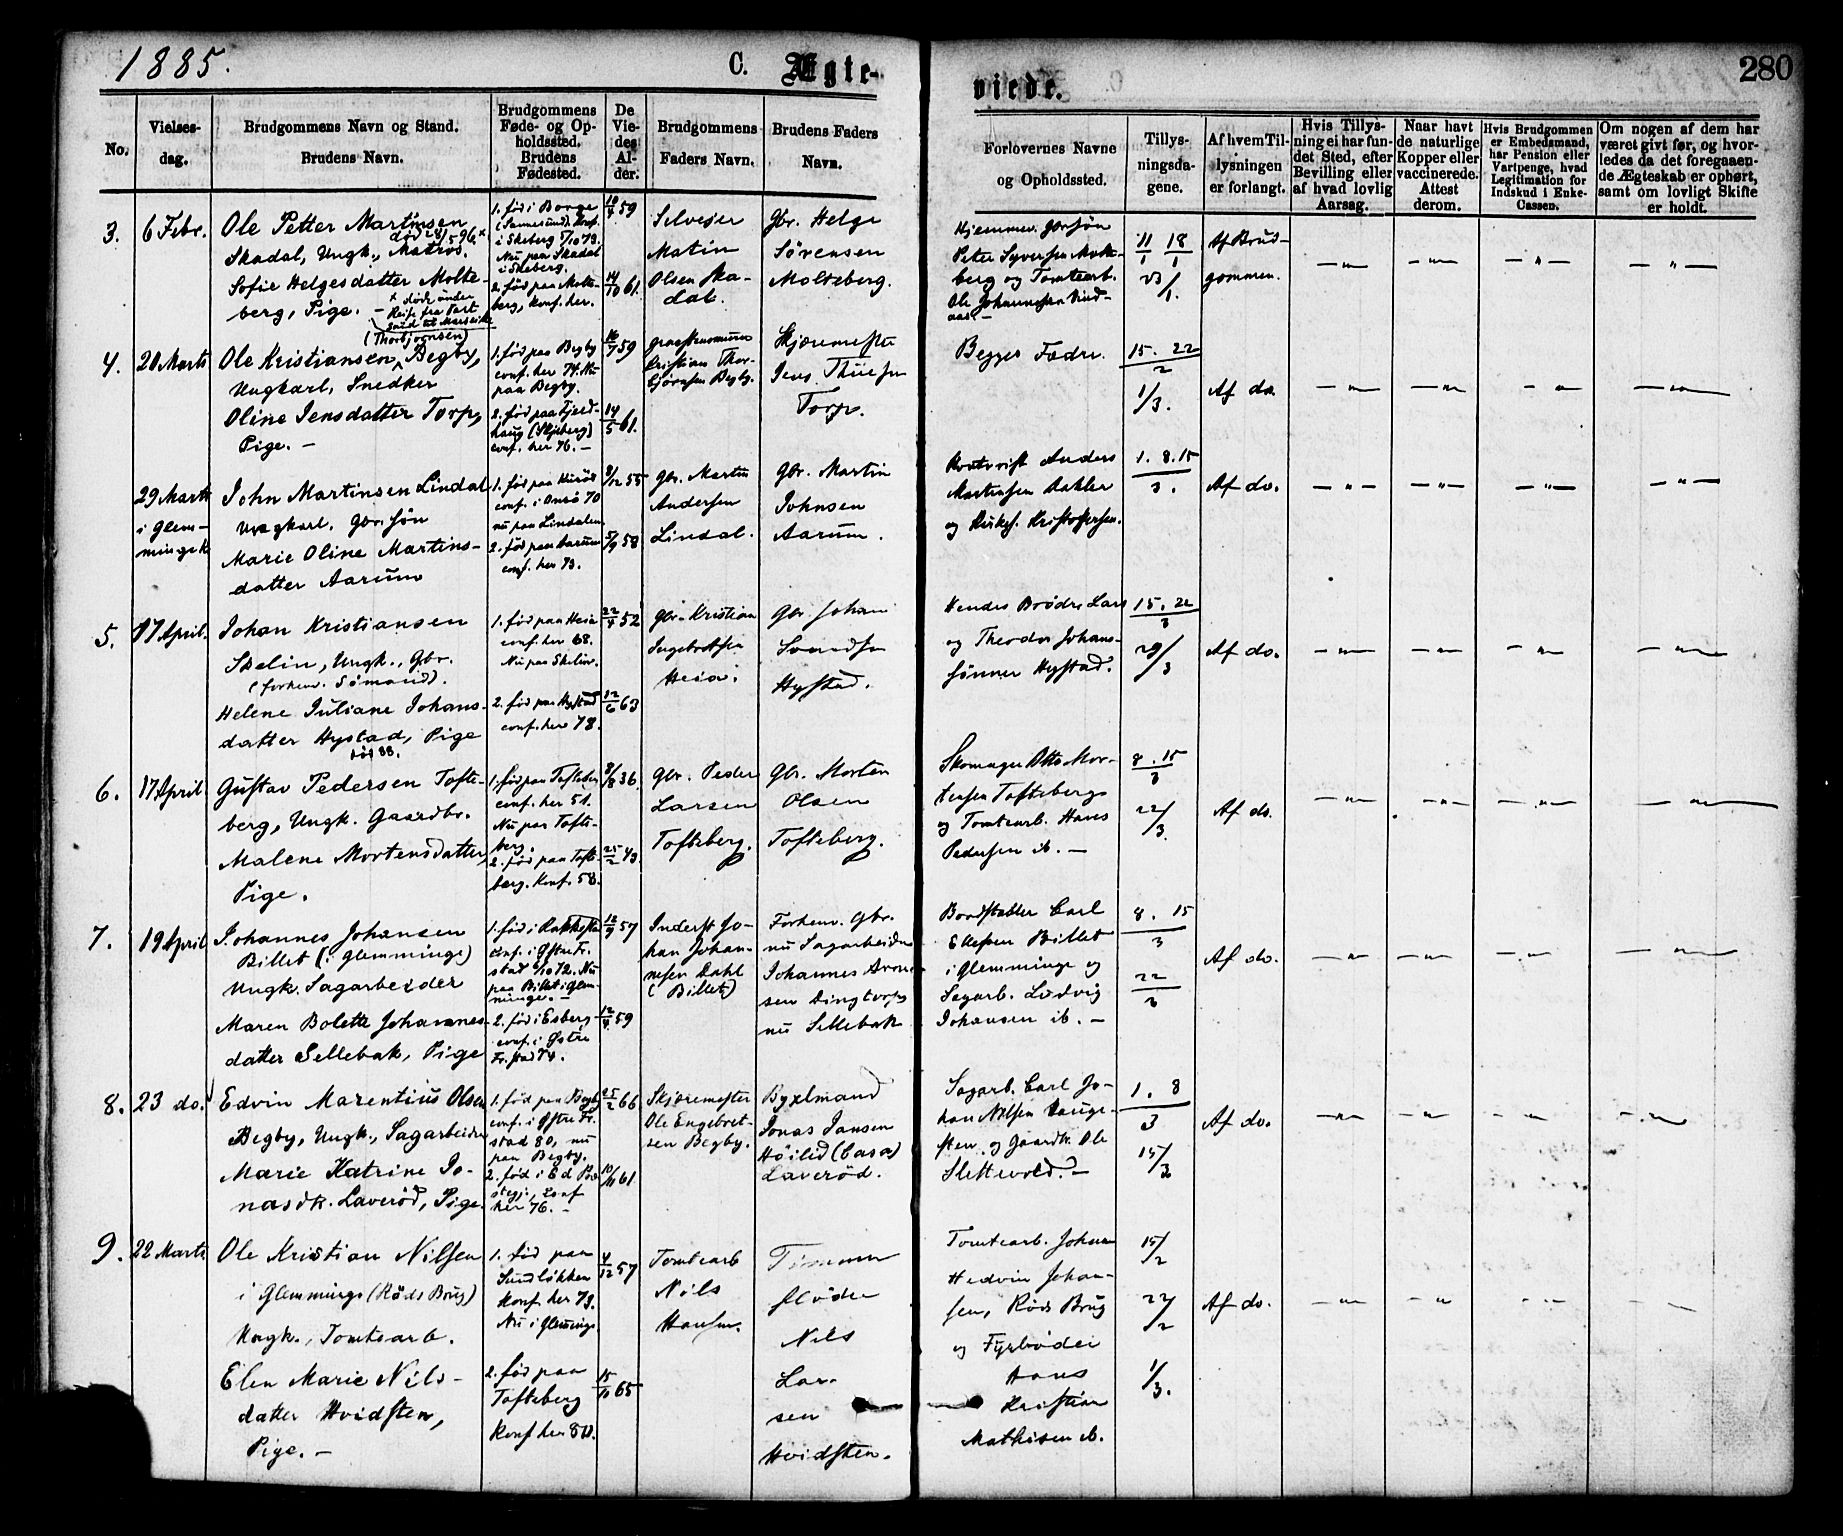 1885.
C. Ægte-
viede.
280
No.
Vielses-
dag.
Brudgommens Navn og Stand.
Brudens Navn.
Brudgommens
Føde- og Op-
holdssted.
Brudens
Fødested.
De
Vie-
des
Al-
der.
Brudgommens
Faders Navn.
Brudens Faders
Navn.
Forlovernes Navne
og Opholdssted.
Tillys-
ningsda-
gene.
Af hvem Til-
lysningen
er forlangt.
Hvis Tillys-
ning ei har fun-
det Sted, efter
Bevilling eller
af hvad lovlig
Aarsag.
Naar havt
de naturlige
Kopper eller
vaccinerede.
Attest
derom.
Hvis Brudgommen
er Embedsmand,
har Pension eller
Vartpenge, hvad
Legitimation for
Indskud i Enke-
Cassen.
Om nogen af dem har
været givt før, og hvor-
ledes da det foregaaen-
de Ægteskab er ophørt,
samt om lovligt Skifte
er holdt.
3.
6 Febr.
Ole Petter Martinsen
død 28/5 96. x
Skadal, Ungk., Matros.
Sofie Helgesdatter Molte-
berg, Pige. -
x døde under
Reise fra Port
(Thorbjørnsen)
1. fød i Borge
i Skeberg 5/10 73.
Nu paa Skadal
i Skeberg.
2. fød paa Molte-
berg, Konf. her.
59
14/10 61.
Martin
Olsen Ska-
dal.
Gbr. Helge
Sörensen
Molteberg.
Hjemmev. gbr sön
Peter Syversen Molte-
berg og Tomtearb.
Ole Johannesen
11/1 18/1
Af Brud-
gommen.
4.
20 Marts
Ole Kristiansen, Begby,
Ungkarl, Snedker
Oline Jensdatter Torp,
Pige. -
1. fød paa Begby
conf. her 74. Nu
paa Begby.
2. fød paa Fjeld-
haug (Skjeberg)
conf. her 76. -
16/7 59
14/5 61.
Kristian Thor-
bjørnsen Begby.
Skjæremester
Jens Thuesen
Torp.
Begges Fædre.
15. 22
2
1/3.
Af do.
29 Marts
i Glem-
minge K
John Martinsen Lindal
Ungkarl. Gbr. sön
Marie Oline Martins-
datter Aarum
1. fød paa Huseö
conf. i Onsö 70
nu paa Lindalen.
2. fød paa Aarum
conf. her 73.
8/12 55
5/9 58
Gbr. Martin
Andersen
Lindal.
Gbr. Martin
Johnsen
Aarum.
Anders
Martinsen Dahler
og Kirkes. Kristoffersen.
1. 8. 15
3.
Af do.
5.
17 April.
Johan Kristiansen
Skelin, Ungk., Gbr.
(forhenv. Sömand).
Helene Juliane Johans-
datter Hystad, Pige
død 88.
1. fød paa Heia
conf. her 68.
Nu paa Skelin.
2. fød paa Hystad
conf. here 78.
52
12/6 63
Gbr. Kristian
Ingebretsen
Heia.
Gbr. Johan
Hystad.
Hendes Brödre Lars
og Theodor Johans-
sönner Hystad.
15. 22
3
29/3
Af do.
6.
17 April
Gustav Pedersen Tofte-
berg, Ungk. Gaardbr.
Malene Mortensdatter,
Pige.
1. fød paa Tofteberg
conf. her 51.
Nu paa Tofte-
berg.
2. fød paa Tofte-
berg. Konf. 58.
8/8 36.
25/2 43
Gbr. Peder
Larsen
Tofteberg.
Gbr. Morten
Olsen
Tofteberg.
Skomager Otto Mor-
tensen Tofteberg
og Tomtearb. Hans
Pedersen ib. -
8. 15
3
22/3.
Af do.
7.
19 April
Johannes Johansen
Billet (i Glemminge)
Ungk. Sagarbeider
Maren Bolette Johannes-
datter Sellebak, Pige
1. fød i Rakkestad
conf. i Østre Fr.
stad 1/10 72. Nu
paa Billet i Glem-
minge. -
2. fød i Esberg
conf. i Østre
Fr. stad 74.
12/9 57
12/4 59
Inderst Jo-
han Johan-
nesen Dahl
(Billet)
Forhenv. Gbr.
nu Sagarbeider
Johannes Arne-
sen Lingtorp
nu Sellebak
Bordstabler Carl
Billet
i Glemminge og
Sagarb. Ludvig
Johansen ib. -
8. 15
3
22
3
Af do.
8.
23 do.
Edvin Marentius Olsen
Begby, Ungk., Sagarbeider
Marie Katrine Jo-
nasdtr. Laveröd, Pige.
1. fød paa Begby
conf. i Østre Fr.
stad 80, nu
paa Begby.
her 76. -
25/2 66
10/11 61.
Skjæremester
Ole Engebret-
sen Begby.
Byxlmand
Jonas Jansen
Höilid (Casa)
Laveröd.
Sagarb. Carl Jo-
han Nilsen Hauge-
sten og Gaardbr. Ole
Slettevold. -
1. 8
3
15/3
Af do.
9.
22 Marts
Ole Kristian Nilsen
i Glemminge (Röds Brug)
Ungk., Tomtearb.
Elen Marie Nils-
datter Hvidsten,
Pige. -
1. fød paa
Sundlökken
Konf. her 73.
Nu i Glemminge.
2. fød paa
Tofteberg
Konf her 80.
4/12 57
15/10 65
Tomtearb
Nils
Hansen.
Tömmer
flöder
Nils
Lar-
sen
Hvidsten.
Tomtearb. Johan
Hedvin Johan-
sen, Röds Brug
og Fyrböder
Hans
Kristian
Mathisen ib.
15/2
22/2
1/3.
Af do.